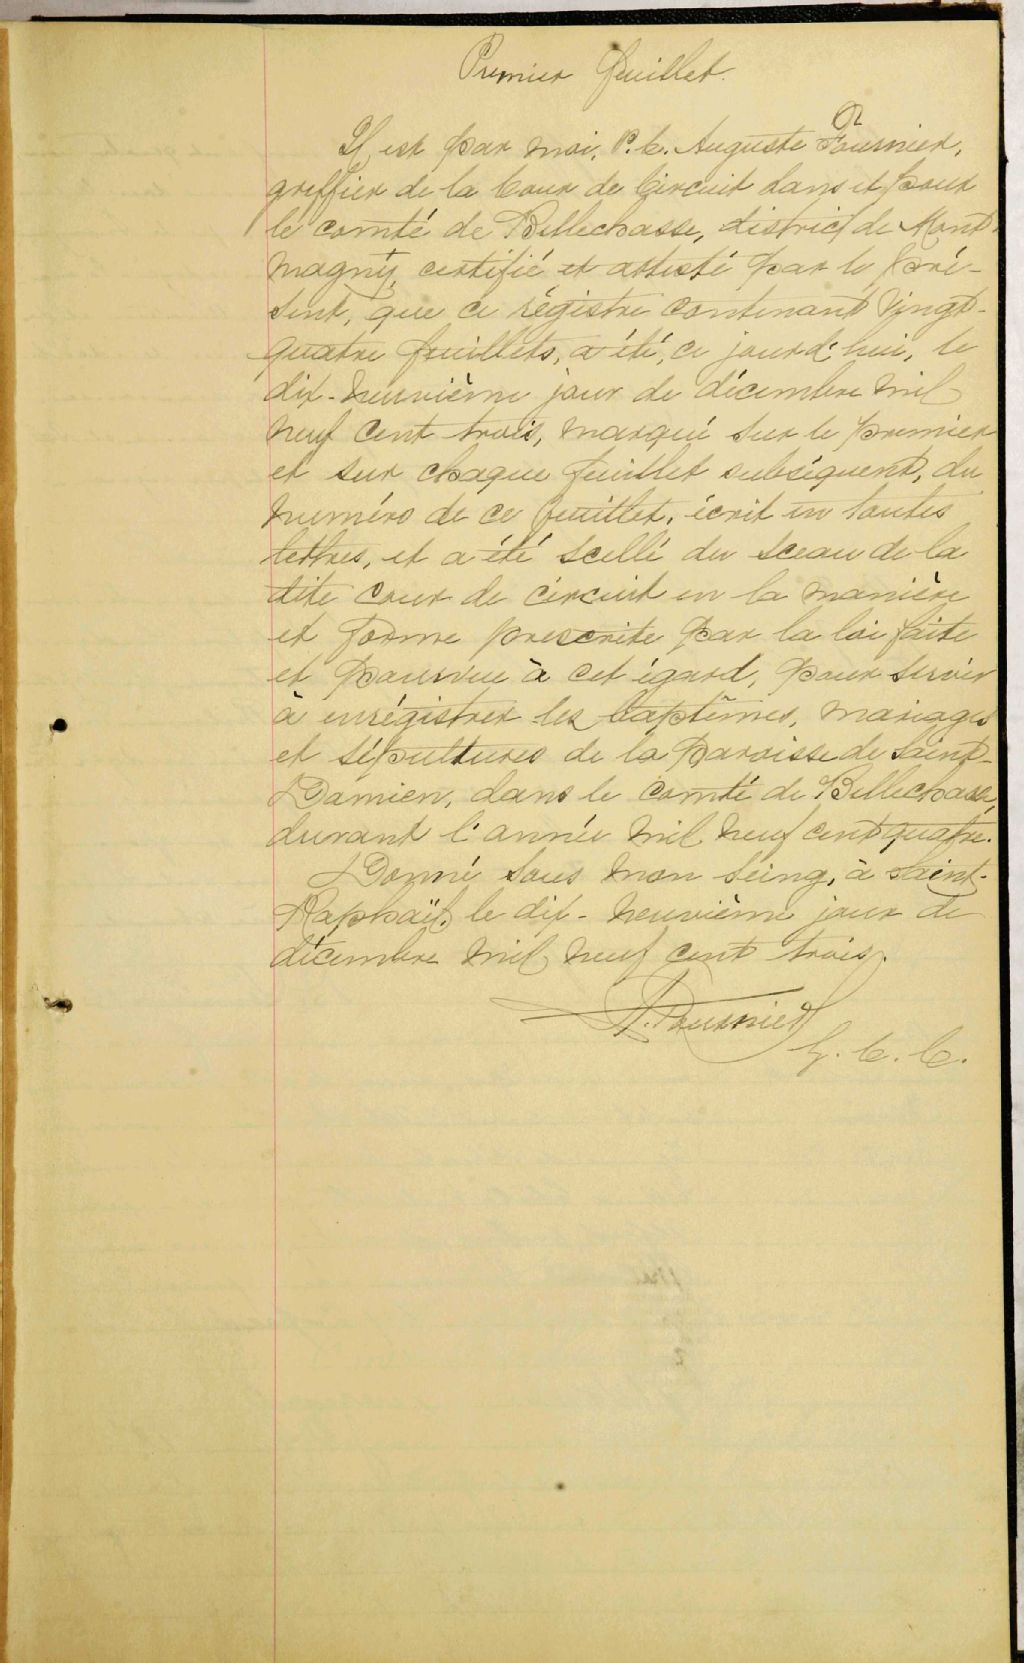 Premier feuillet.
Il est par moi, P. C. Auguste Fournier,
greffier de la Cour de Circuit dans et pour
le comté de Bellechasse, district de Mont-
magny, certifié et attesté par le pré-
sent, que ce régistre contenant vingt-
quatre feuillets, a été, ce jourd'hui, le
dix-neuvième jour de décembre mil
neuf cent trois, marqué sur le premier
et sur chaque feuillet subséquent, du
numéro de ce feuillet, écrit en toutes
lettres, et a été scellé du sceau de la
dite cour de circuit en la manière
et forme prescrite par la loi faite
et pourvue à cet égard, pour servir
à enrégistrer les baptêmes, mariages
et sépultures de la paroisse de Saint-
Damien, dans le comté de Bellechasse,
durant l'année mil neuf cent quatre.
Donné sous mon seing, à Saint-
Raphaël, le dix-neuvième jour de
décembre mil neuf cent trois.
A. Fournier
G. C. C.